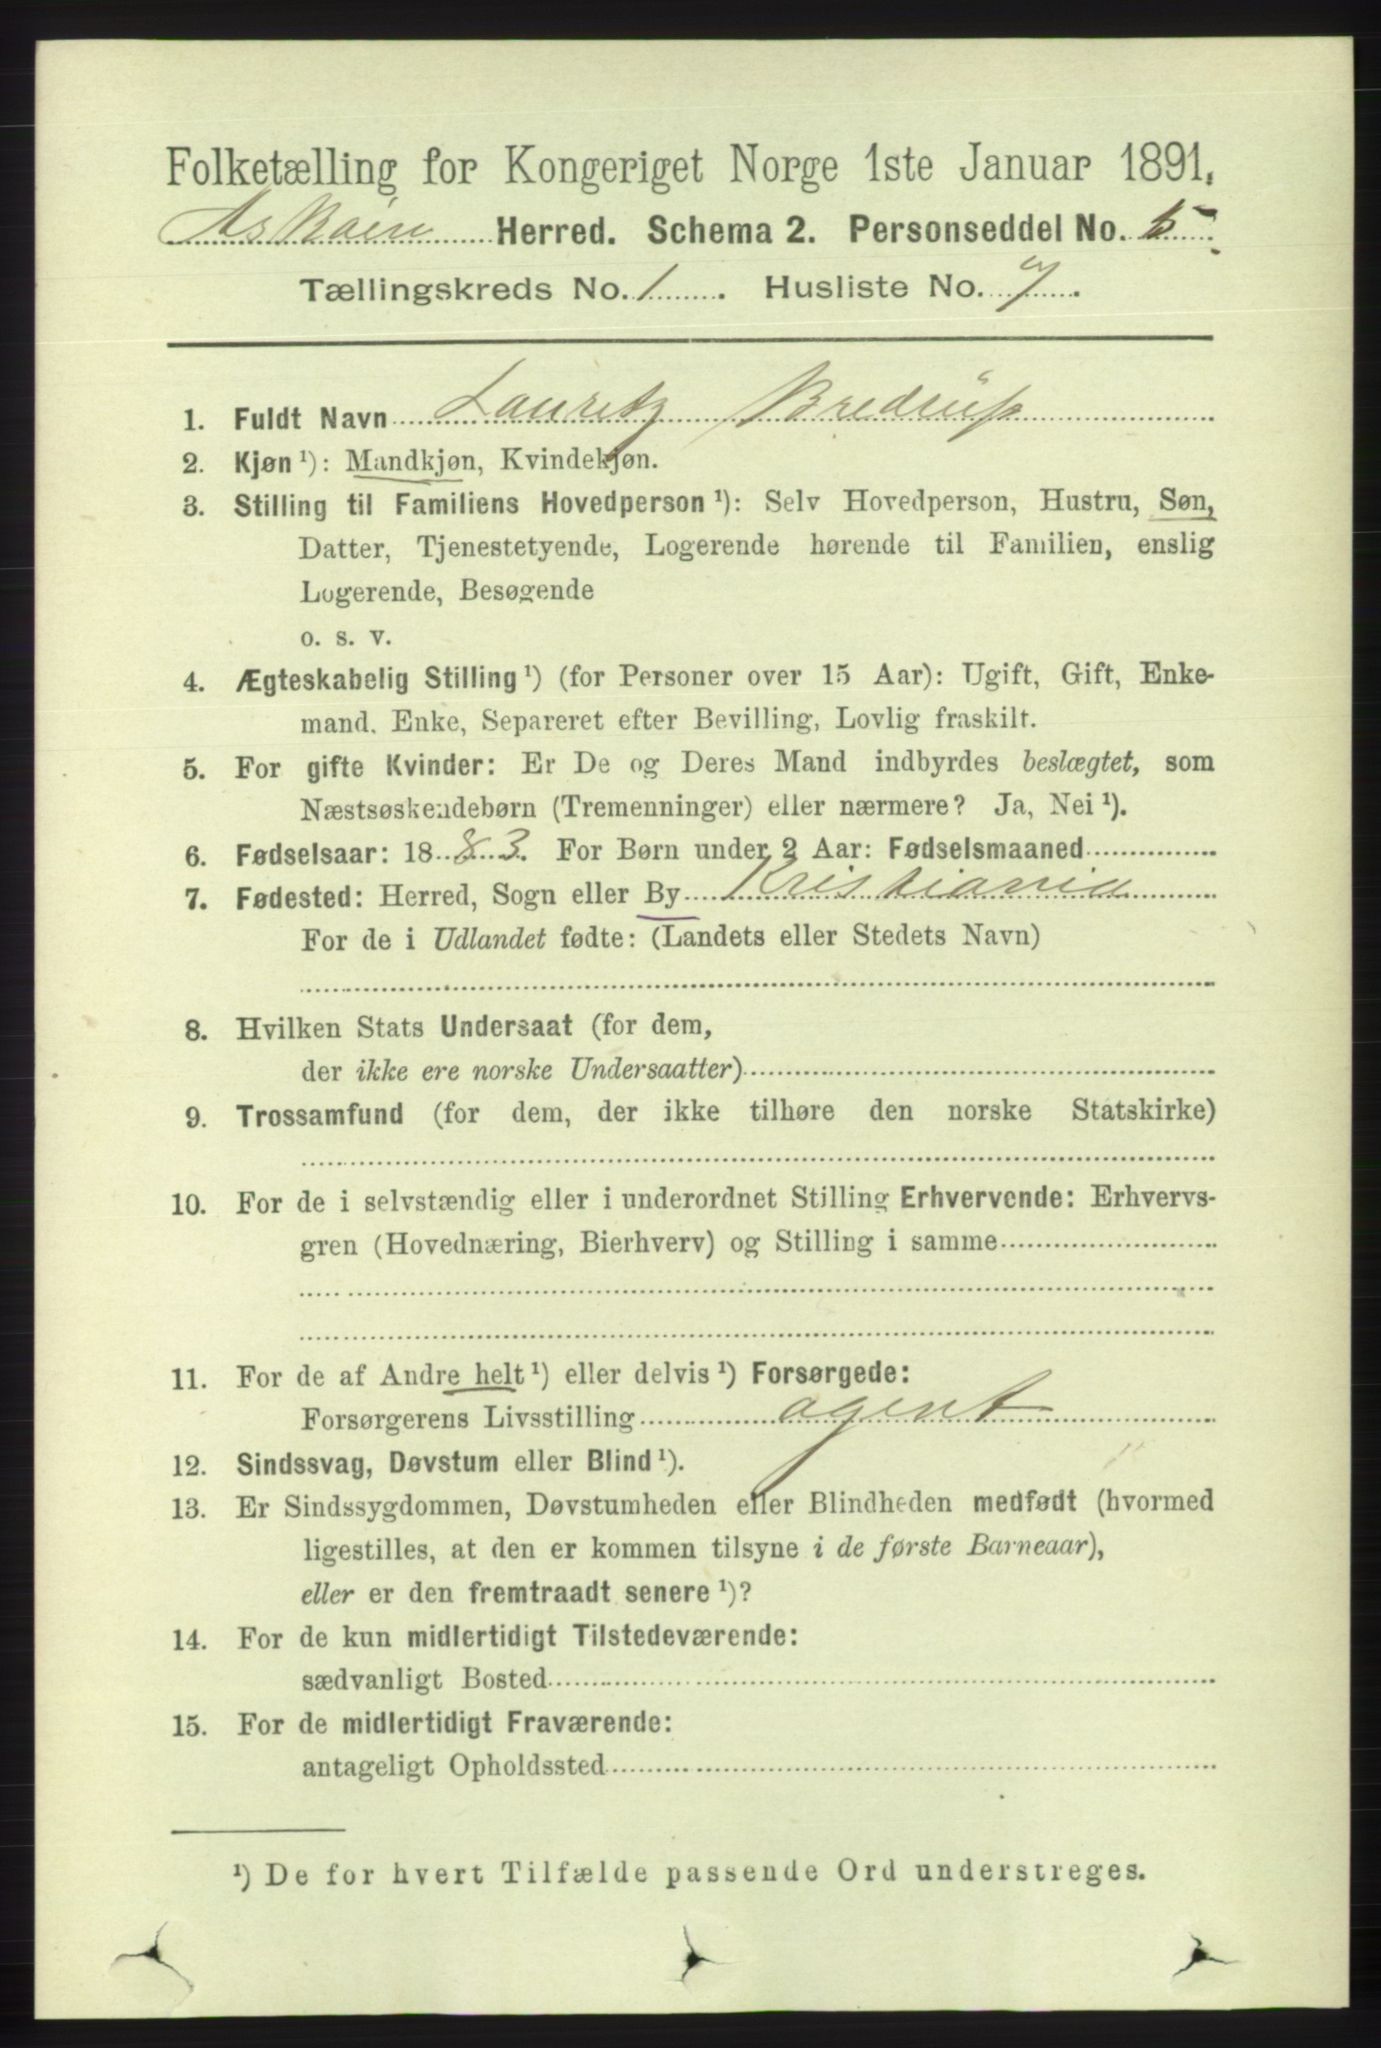 Folketælling for Kongeriget Norge 1ste Januar 1891.
Askøen Herred. Schema 2. Personseddel No. 5.
Tællingskreds No. 1. Husliste No. 7.
1. Fuldt Navn Lauritz Bredrup
2. Kjøn ¹): Mandkjøn, Kvindekjøn.
3. Stilling til Familiens Hovedperson ¹): Selv Hovedperson, Hustru, Søn,
Datter, Tjenestetyende, Logerende hørende til Familien, enslig
Logerende, Besøgende
o. s. v.
4. Ægteskabelig Stilling ¹) (for Personer over 15 Aar): Ugift, Gift, Enke-
mand, Enke, Separeret efter Bevilling, Lovlig fraskilt.
5. For gifte Kvinder: Er De og Deres Mand indbyrdes beslægtet, som
Næstsøskendebørn (Tremenninger) eller nærmere? Ja, Nei ¹).
6. Fødselsaar: 1883. For Børn under 2 Aar: Fødselsmaaned
7. Fødested: Herred, Sogn eller By Kristiania
For de i Udlandet fødte: (Landets eller Stedets Navn)
8. Hvilken Stats Undersaat (for dem,
der ikke ere norske Undersaatter)
9. Trossamfund (for dem, der ikke tilhøre den norske Statskirke)
10. For de i selvstændig eller i underordnet Stilling Erhvervende: Erhvervs-
gren (Hovednæring, Bierhverv) og Stilling i samme
11. For de af Andre helt ¹) eller delvis ¹) Forsørgede:
Forsørgerens Livsstilling agent
12. Sindssvag, Døvstum eller Blind ¹).
13. Er Sindssygdommen, Døvstumheden eller Blindheden medfødt (hvormed
ligestilles, at den er kommen tilsyne i de første Barneaar),
eller er den fremtraadt senere ¹)?
14. For de kun midlertidigt Tilstedeværende:
sædvanligt Bosted
15. For de midlertidigt Fraværende:
antageligt Opholdssted
¹) De for hvert Tilfælde passende Ord understreges.